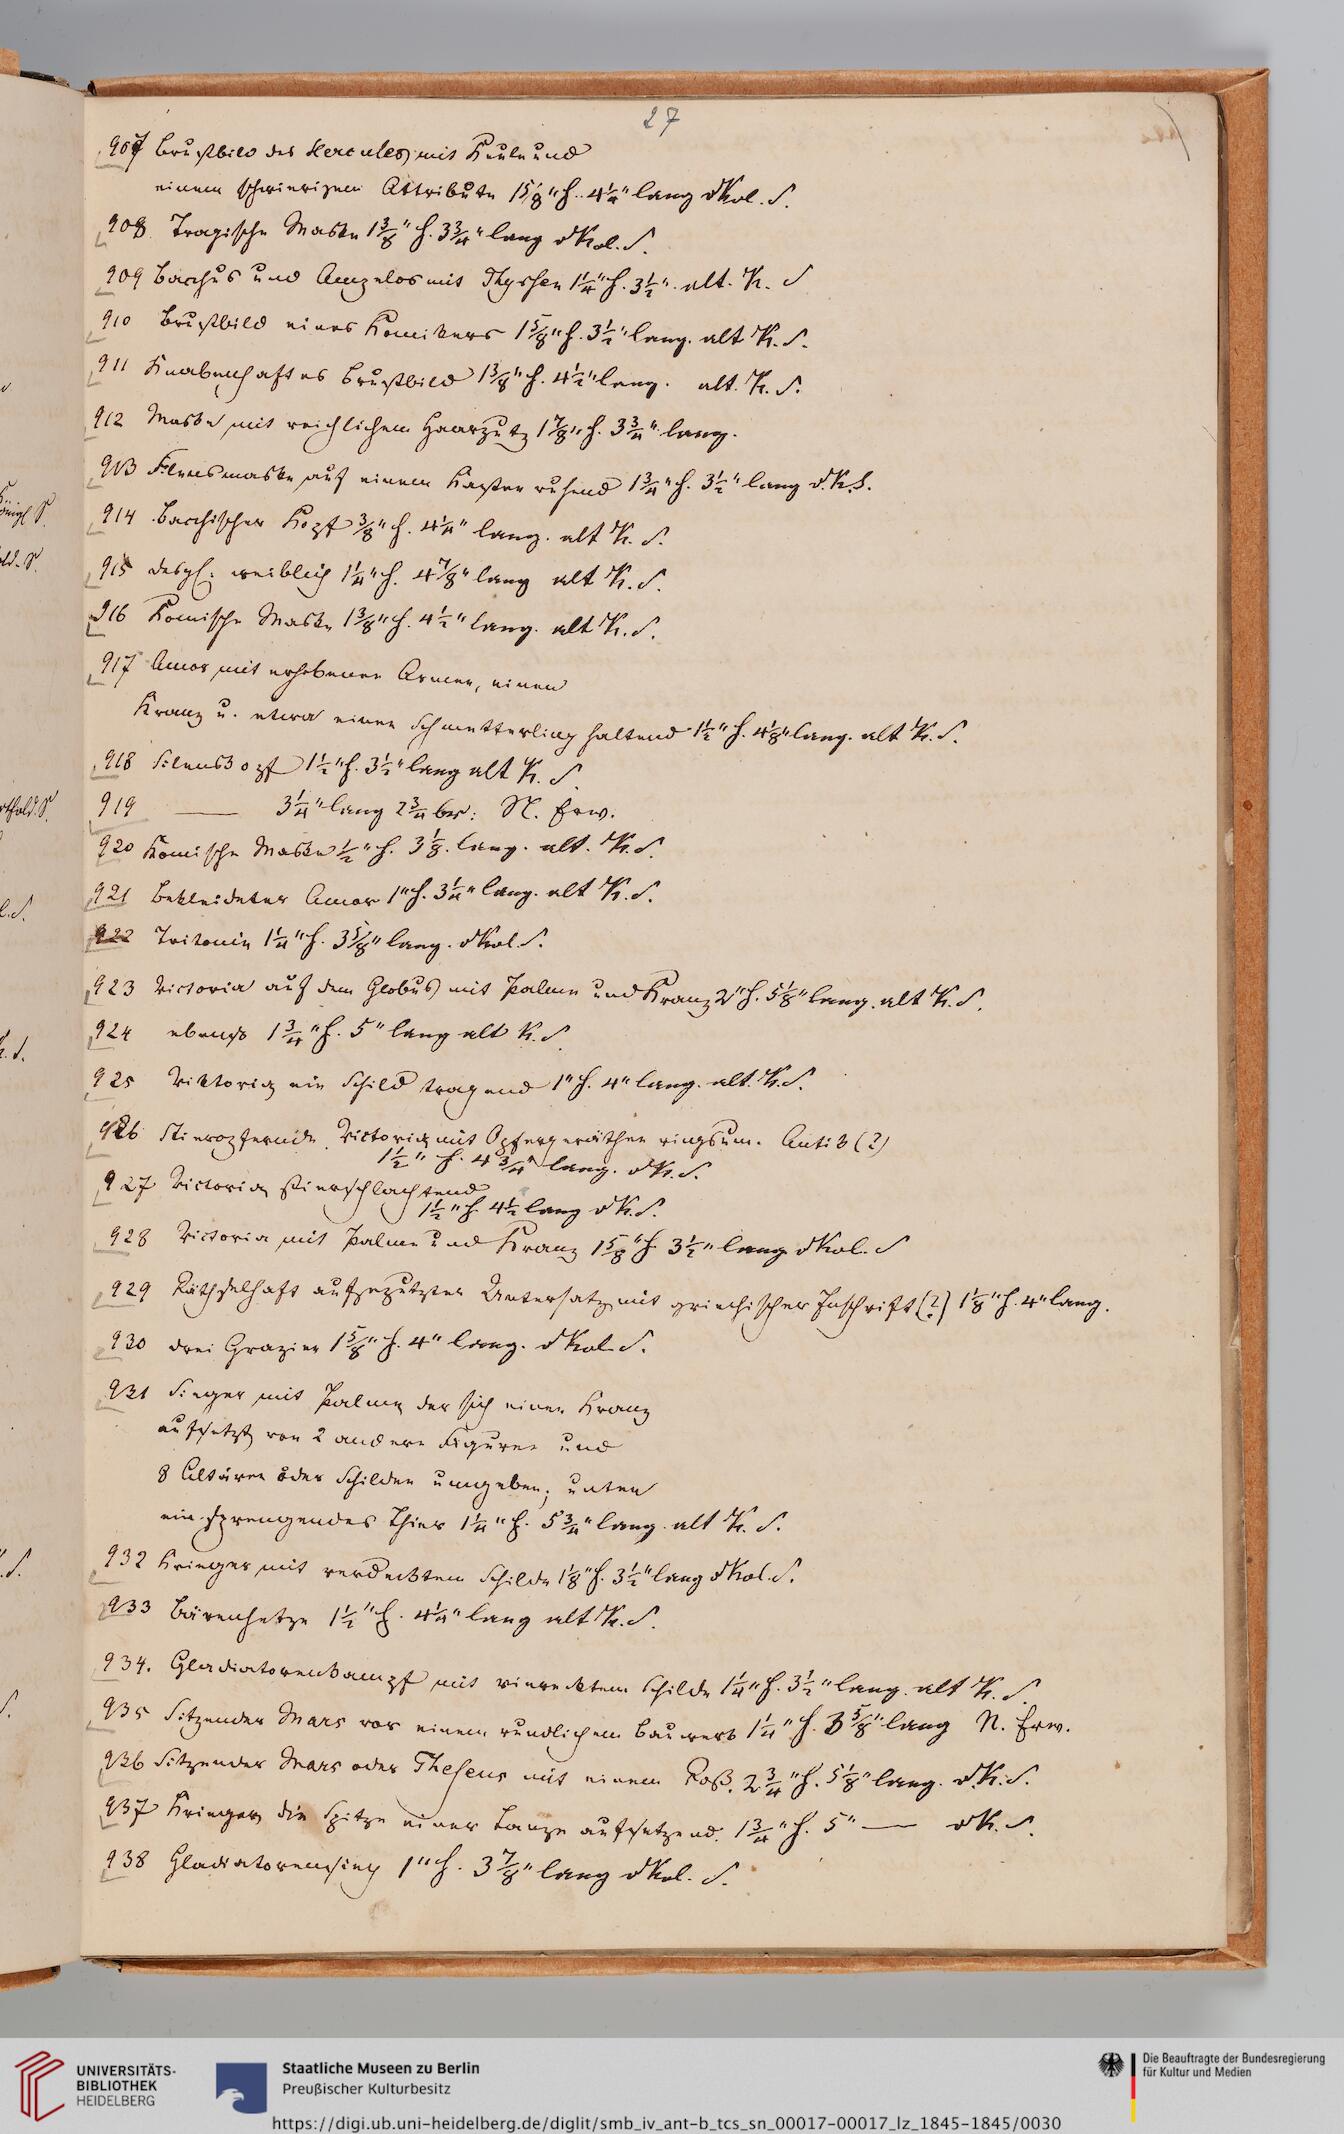 27
907 Brustbild des Hercules mit Keule und
einem schwierigen Attribute 1 5/8" h. 4 1/4" lang dKol. S.
908. Tragische Maske 1 3/8" h. 3 3/4" lang dKol. S.
909 Bacchus und Ampelos mit Thyrsen 1 1/4" h. 3 1/2". alt. K. S
910 Brustbild eines Komikers 1 5/8" h. 3 1/2" lang. alt K. S.
911 Knabenhaftes Brustbild 1 3/8" h. 4 1/2" lang. alt. K. S.
912 Maske mit reichlichem Haarputz 1 7/8" h. 3 3/4" lang.
913 Silensmaske auf einem Kasten ruhend 1 3/4" h. 3 1/2" lang d.K.S.
914 Bacchischer Kopf 3/8" h. 4 1/4" lang. alt K. S.
915 desgl. weiblich 1 1/4" h. 4 7/8" lang alt K. S.
916 Komische Maske 1 3/8" h. 4 1/2" lang. alt K. S.
917 Amor mit erhobenen Armen, einen
Kranz u. etwa einen Schmetterling haltend 1 1/2" h. 4 1/8" lang. alt K. S.
918 Silenskopf 1 1/2" h. 3 1/2" lang alt K. S.
919 — 3 1/4" lang 2 3/4 br: N. Erw.
920 Komische Maske 1/2" h. 3 1/8. lang. alt. K. S.
921 Bekleideter Amor 1" h. 3 1/4" lang. alt K. S.
922 Tritonin 1 1/4" h. 3 5/8" lang. dKol. S.
923 Victoria auf dem Globus mit Palme und Kranz 2" h. 5 1/8" lang. alt K. S.
924 ebenso 1 3/4" h. 5" lang alt K. S.
925 Viktoria ein Schild tragend 1" h. 4" lang. alt. K. S.
926 Stieropfernde Victoria mit Opfergeräthen ringsum. Antik (?)
1 1/2" h. 4 3/4" lang. dK. S.
927 Victoria stierschlachtend
1 1/2" h. 4 1/2 lang dK. S.
928 Victoria mit Palme und Kranz 1 5/8" h. 3 1/2" lang dKol. S
929 Räthselhaft aufgeputzter Untersatz mit griechischer Inschrift (?) 1 1/8" h. 4" lang.
930 drei Grazien 1 5/8" h. 4" lang. dKol. S.
931 Sieger mit Palme der sich einen Kranz
aufsetzt von 2 andern Figuren und
8 Altären oder Schilden umgeben; unten
ein springendes Thier 1 1/4" h. 5 3/4" lang. alt K. S.
932 Krieger mit verdecktem Schilde 1 1/8" h. 3 1/2" lang dKol. S.
933 Bärenhetze 1 1/2" h. 4 1/4" lang alt K. S.
934. Gladiatorenkampf mit vierecktem Schilde 1 1/4" h. 3 1/2" lang. alt K. S.
935 Sitzender Mars vor einem rundlichem Bauwerk 1 1/4" h. 3 5/8" lang N. Erw.
936 Sitzender Mars oder Theseus mit einem Roß. 2 3/4" h. 5 1/8" lang. d.K. S.
937 Krieger die Spitze einer Lanze aufsetzend. 1 3/4" h. 5" — dK. S.
938 Gladiatorensieg 1" h. 3 7/8" lang dKol. S.
UNIVERSITÄTS-
BIBLIOTHEK
HEIDELBERG
Staatliche Museen zu Berlin
Preußischer Kulturbesitz
Die Beauftragte der Bundesregierung
für Kultur und Medien
https://digi.ub.uni-heidelberg.de/diglit/smb_iv_ant-b_tcs_sn_00017-00017_lz_1845-1845/0030